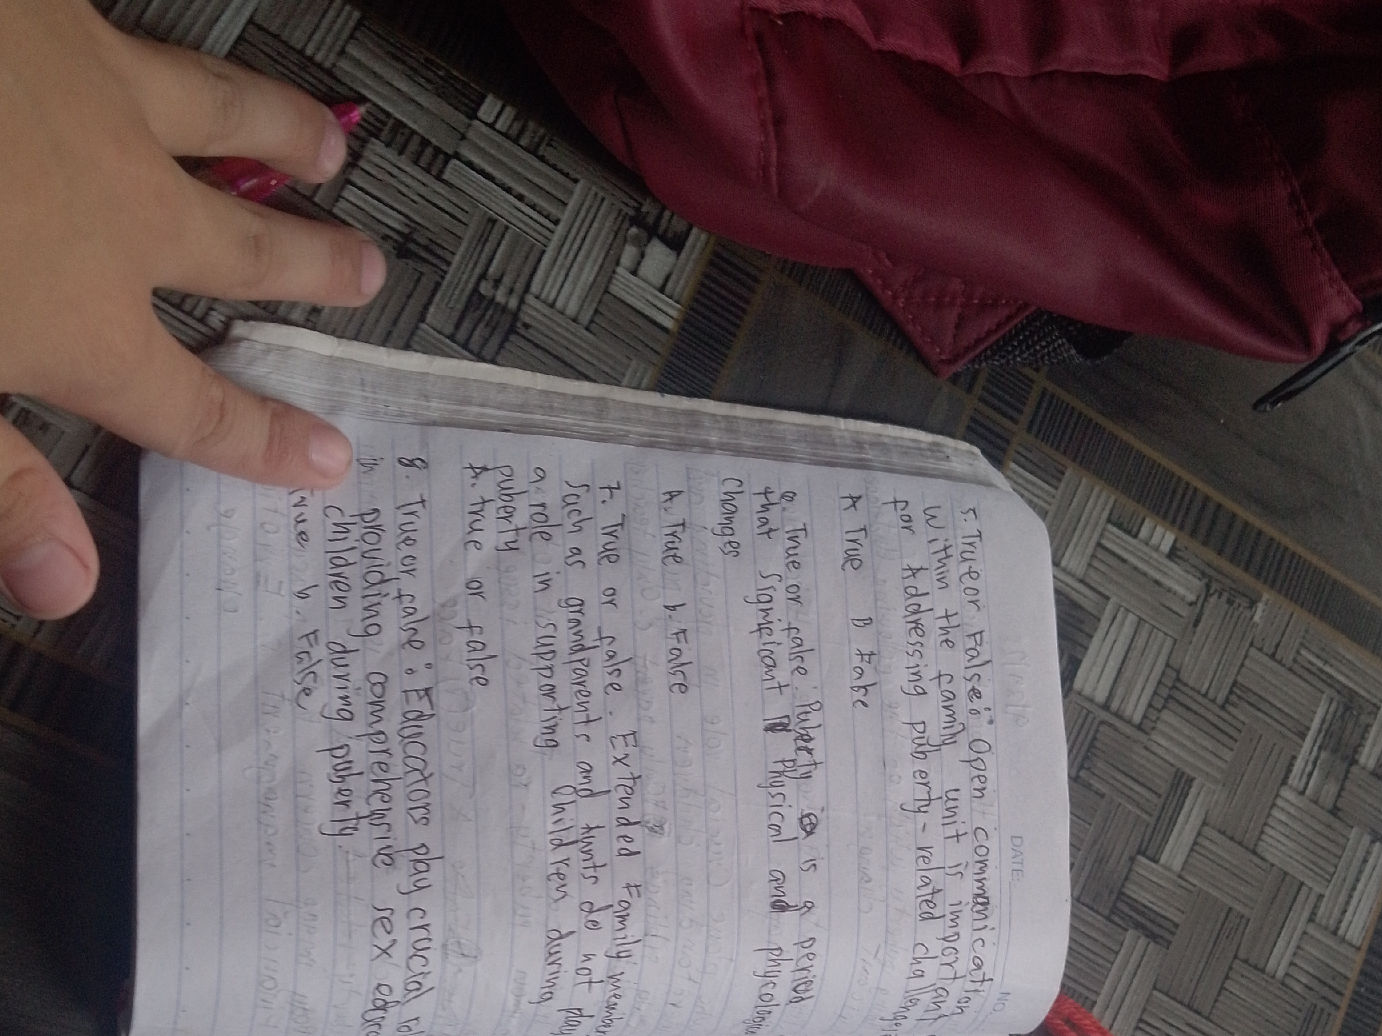 DATE:
NO.
5. True or False: Open communication
within the family unit is important
for Addressing puberty-related challenge
A True B False
6. True or false: Puberty is a period
that significant physical and phycologic
changes
A. True b. False
7. True or false. Extended Family member
Such as grandparents and Aunts do not play
a role in supporting Children during
puberty
A. true or false
8. True or false: Educators play crucial
in providing comprehensive sex
children during puberty
True b. False